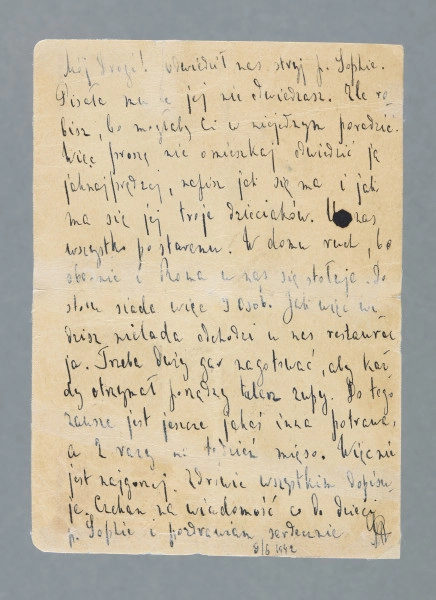 Mój Drogi! Odwiedził nas stryj p. Sophie.
Pisała mu że jej nie odwiedzasz. Źle ro-
bisz, bo mogłaby Ci w niejednym poradzić.
Więc proszę nie omieszkaj odwiedzić ją
jaknajprędzej, napisz jak się ma i jak
ma się jej troje dzieciaków. U nas
wszystko po staremu. W domu ruch, bo
obecnie i Roma u nas się stołuje. Do
stołu siada więc 9 osób. Jak więc wi-
dzisz nielada odchodzi u nas restaurac-
ja. Trzeba duży gar nagotować, aby każ-
dy otrzymał porządny talerz zupy. Do tego
zawsze jest jeszcze jakaś inna potrawa,
a 2 razy na tydzień mięso. Więc nie
jest najgorzej. Zdrowie wszystkim dopisu-
je. Czekam na wiadomość co do dzieci
p. Sophie i pozdrawiam serdecznie
8/6 1942